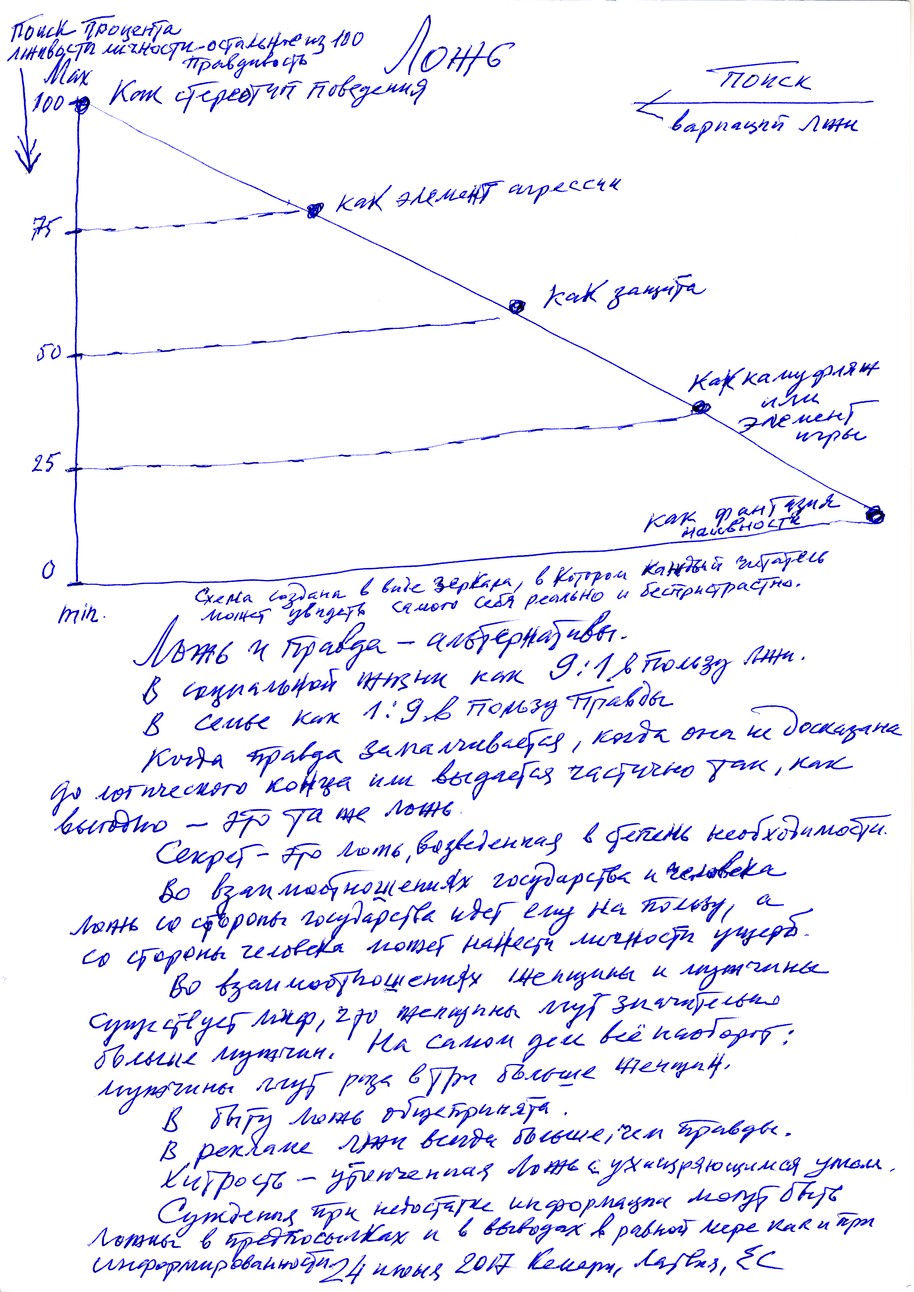 Поиск процента
лживости личности - остальные из 100
правдивость
Ложь
Max
100 Как стереотип поведения
Поиск
вариаций лжи
как элемент агрессии
75
как защита
50
Как камуфляж
или
элемент
игры
25
как фантазия
наивности
0
min.
Схема создана в виде зеркала, в котором каждый читатель
может увидеть самого себя реально и беспристрастно.
Ложь и правда – альтернативы.
В социальной жизни как 9:1 в пользу лжи.
В семье как 1:9 в пользу правды
Когда правда замалчивается, когда она не досказана
до логического конца или выдается частично так, как
выгодно – это та же ложь.
Секрет – это ложь, возведенная в степень необходимости.
Во взаимоотношениях государства и человека
ложь со стороны государства идет ему на пользу, а
со стороны человека может нанести личности ущерб.
Во взаимоотношениях женщины и мужчины
существует миф, что женщины лгут значительно
больше мужчин. На самом деле всё наоборот:
мужчины лгут раза в три больше женщин.
В быту ложь общепринята.
В рекламе лжи всегда больше, чем правды.
Хитрость – утонченная ложь с ухищряющимся умом.
Суждения при недостатке информации могут быть
ложны в предпосылках и в выводах в равной мере как и при
информированности 24 июня 2017 Кемери, Латвия, ЕС